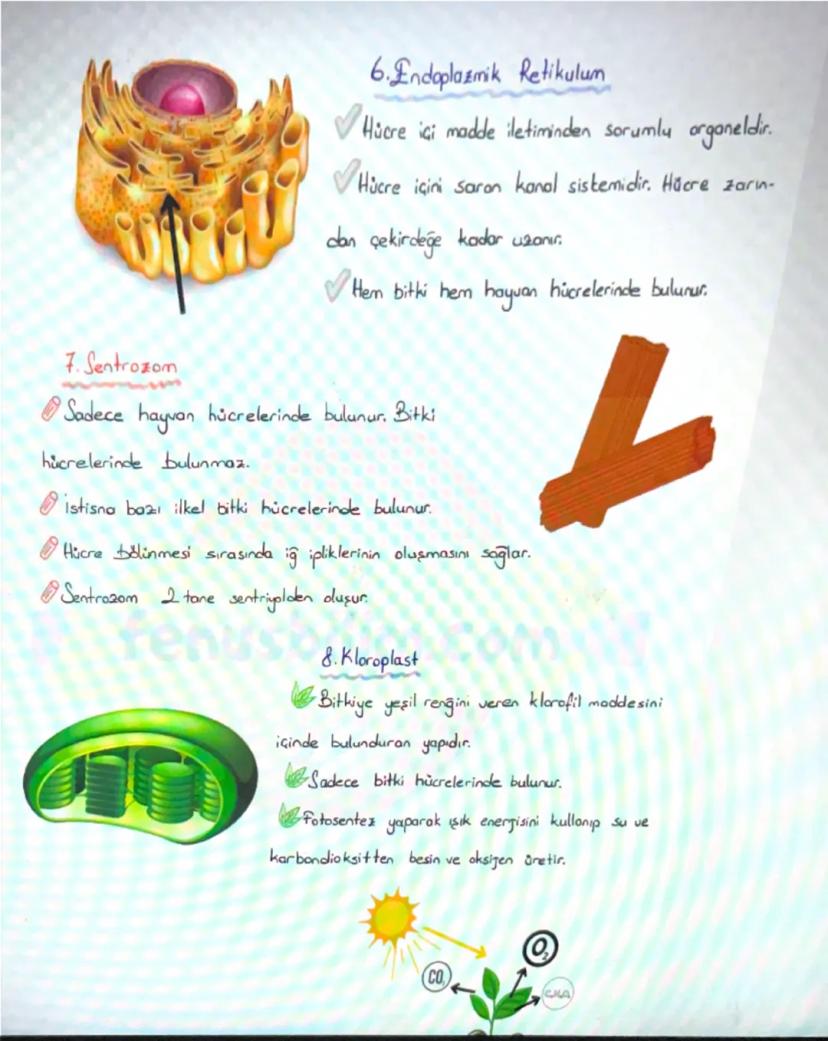 6.Endoplazmik Retikulum
Hücre içi madde iletiminden sorumlu organeldir.
Hücre içini saran kanal sistemidir. Hücre zarın-
dan çekirdeğe kadar uzanır.
Hem bitki hem hayvan hücrelerinde bulunur.
7.Sentrozom
Sadece hayvan hücrelerinde bulunur. Bitki
hücrelerinde bulunmaz.
İstisna bazı ilkel bitki hücrelerinde bulunur.
Hücre bölünmesi sırasında iğ ipliklerinin oluşmasını sağlar.
Sentrozom 2 tane sentriyolden oluşur.
fenusbilim.com
8.Kloroplast
Bitkiye yeşil rengini veren klorofil maddesini
içinde bulunduran yapıdır.
Sadece bitki hücrelerinde bulunur.
Fotosentez yaparak ışık energisini kullanıp su ve
karbondioksitten besin ve oksijen üretir.
O₂
CO₂